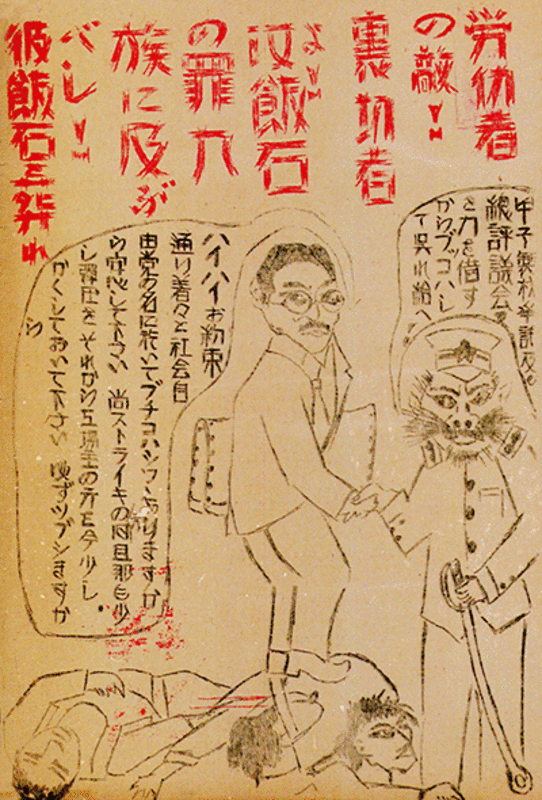 労仂者
の敵!!
裏切者
汝飯石
よ!!
の罪九
族に及ぶ
べし!!
彼飯石ヲ葬れ
総評議会ヲ
からブッコハシ
て呉れ給へ
ハイハイお約束
通り着々と社会自
由党の名に於いてブチコハシツヽありますか
ら安心して下さい 尚ストライキの時旦那も少
し弾圧を それから工場主の方を今少し
かくしておいて下さい 必ずツブシますか
ら